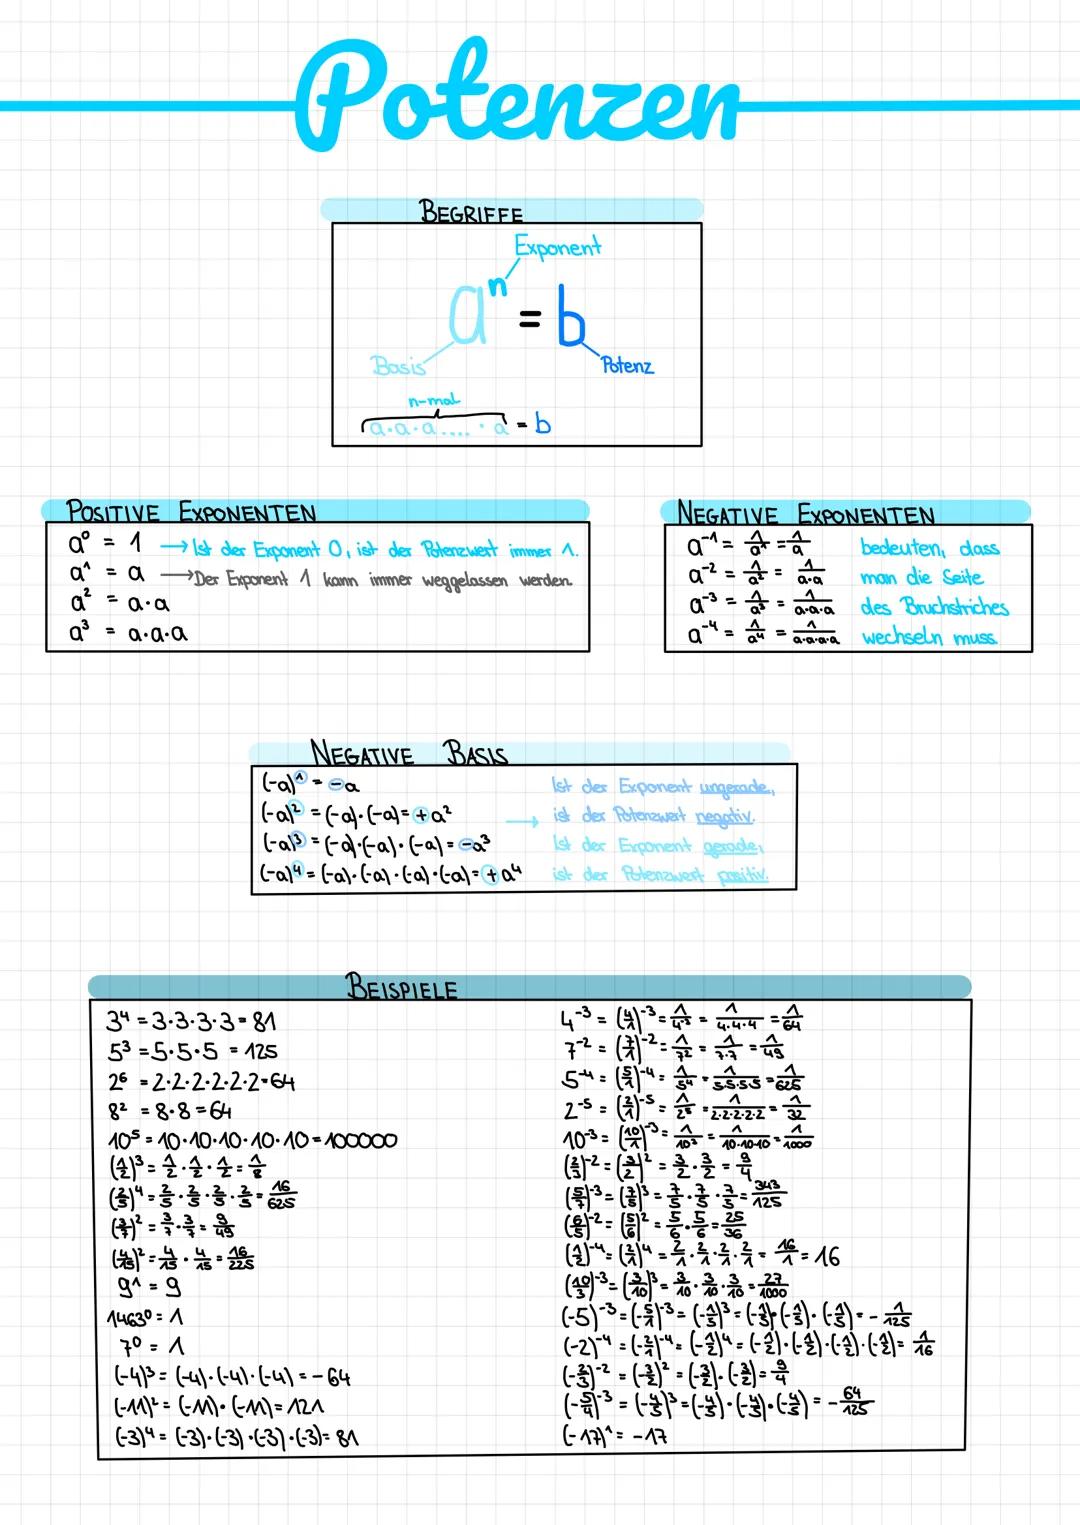 Potenzen
BEGRIFFE
Exponent
aⁿ = b
Basis
Potenz
n-mal
a·a·a.... · a = b
POSITIVE EXPONENTEN
a⁰ = 1 → Ist der Exponent 0, ist der Potenzwert immer 1.
a¹ = a → Der Exponent 1 kann immer weggelassen werden.
a² = a·a
a³ = a·a·a
NEGATIVE EXPONENTEN
a⁻¹ = 1/a¹ = 1/a bedeuten, dass
a⁻² = 1/a² = 1/a·a man die Seite
a⁻³ = 1/a³ = 1/a·a·a des Bruchstriches
a⁻⁴ = 1/a⁴ = 1/a·a·a·a wechseln muss.
NEGATIVE BASIS
(-a)¹ = -a Ist der Exponent ungerade,
(-a)² = (-a)·(-a) = +a² → ist der Potenzwert negativ.
(-a)³ = (-a)·(-a)·(-a) = -a³ Ist der Exponent gerade,
(-a)⁴ = (-a)·(-a)·(-a)·(-a) = +a⁴ ist der Potenzwert positiv.
BEISPIELE
3⁴ = 3·3·3·3 = 81
5³ = 5·5·5 = 125
2⁶ = 2·2·2·2·2·2 = 64
8² = 8·8 = 64
10⁵ = 10·10·10·10·10 = 100000
(1/2)³ = 1/2 · 1/2 · 1/2 = 1/8
(2/5)⁴ = 2/5 · 2/5 · 2/5 · 2/5 = 16/625
(3/7)² = 3/7 · 3/7 = 9/49
(4/15)² = 4/15 · 4/15 = 16/225
9¹ = 9
1463⁰ = 1
7⁰ = 1
(-4)³ = (-4)·(-4)·(-4) = -64
(-11)² = (-11)·(-11) = 121
(-3)⁴ = (-3)·(-3)·(-3)·(-3) = 81
4⁻³ = (4/1)⁻³ = 1/4³ = 1/4·4·4 = 1/64
7⁻² = (7/1)⁻² = 1/7² = 1/7·7 = 1/49
5⁻⁴ = (5/1)⁻⁴ = 1/5⁴ = 1/5·5·5·5 = 1/625
2⁻⁵ = (2/1)⁻⁵ = 1/2⁵ = 1/2·2·2·2·2 = 1/32
10⁻³ = (10/1)⁻³ = 1/10³ = 1/10·10·10 = 1/1000
(2/3)⁻² = (3/2)² = 3/2 · 3/2 = 9/4
(5/7)⁻³ = (7/5)³ = 7/5 · 7/5 · 7/5 = 343/125
(6/5)⁻² = (5/6)² = 5/6 · 5/6 = 25/36
(1/2)⁻⁴ = (2/1)⁴ = 2/1 · 2/1 · 2/1 · 2/1 = 16/1 = 16
(10/3)⁻³ = (3/10)³ = 3/10 · 3/10 · 3/10 = 27/1000
(-5)⁻³ = (-5/1)⁻³ = (-1/5)³ = (-1/5)·(-1/5)·(-1/5) = -1/125
(-2)⁻⁴ = (-2/1)⁻⁴ = (-1/2)⁴ = (-1/2)·(-1/2)·(-1/2)·(-1/2) = 1/16
(-2/3)⁻² = (-3/2)² = (-3/2)·(-3/2) = 9/4
(-5/4)⁻³ = (-4/5)³ = (-4/5)·(-4/5)·(-4/5) = -64/125
(-17)¹ = -17